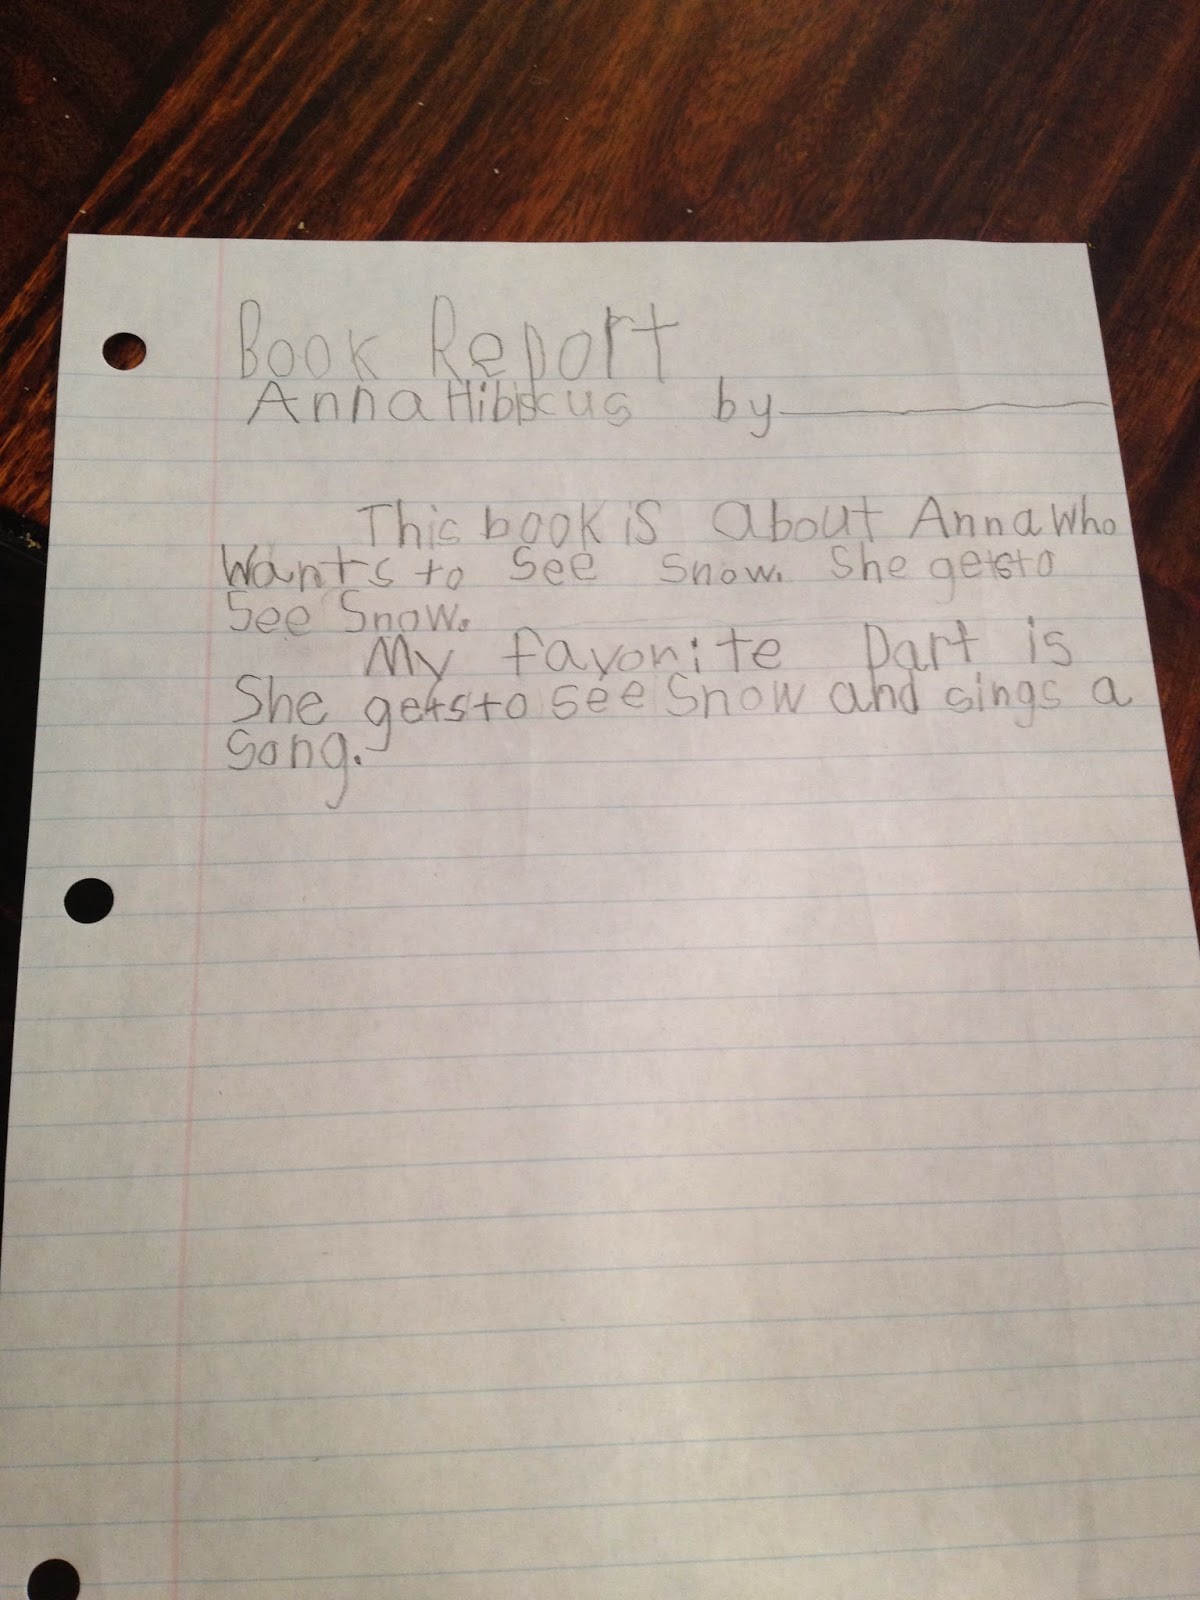 Book Report
Anna Hibiscus by
This book is about Anna who
wants to see snow. She gets to
see snow.
My favorite part is
She gets to see snow and sings a
song.